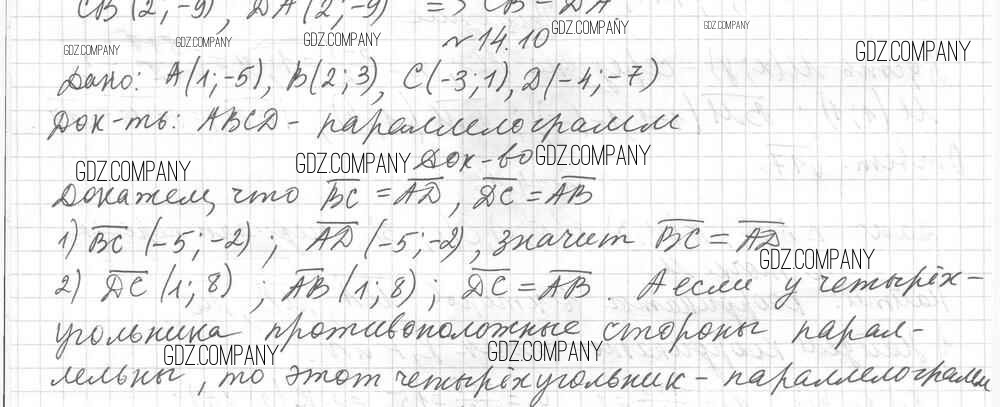 CB(2;-9), DA(2;-9) => CB = DA
GDZ.COMPANY GDZ.COMPANY GDZ.COMPANY №14.10 GDZ.COMPANY GDZ.COMPANY GDZ.COMPANY
Дано: A(1;-5), B(2;3), C(-3;1), D(-4;-7)
Док-ть: ABCD - параллелограмм
GDZ.COMPANY GDZ.COMPANY Док-во GDZ.COMPANY
Докажем, что BC = AD, DC = AB
1) BC (-5;-2); AD (-5;-2), значит BC = AD
GDZ.COMPANY
2) DC (1;8); AB (1;8); DC = AB. А если у четырёх-
угольника противоположные стороны парал-
GDZ.COMPANY GDZ.COMPANY
лельны, то этот четырёхугольник - параллелограмм